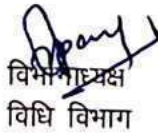 विभागाध्यक्ष
विधि विभाग